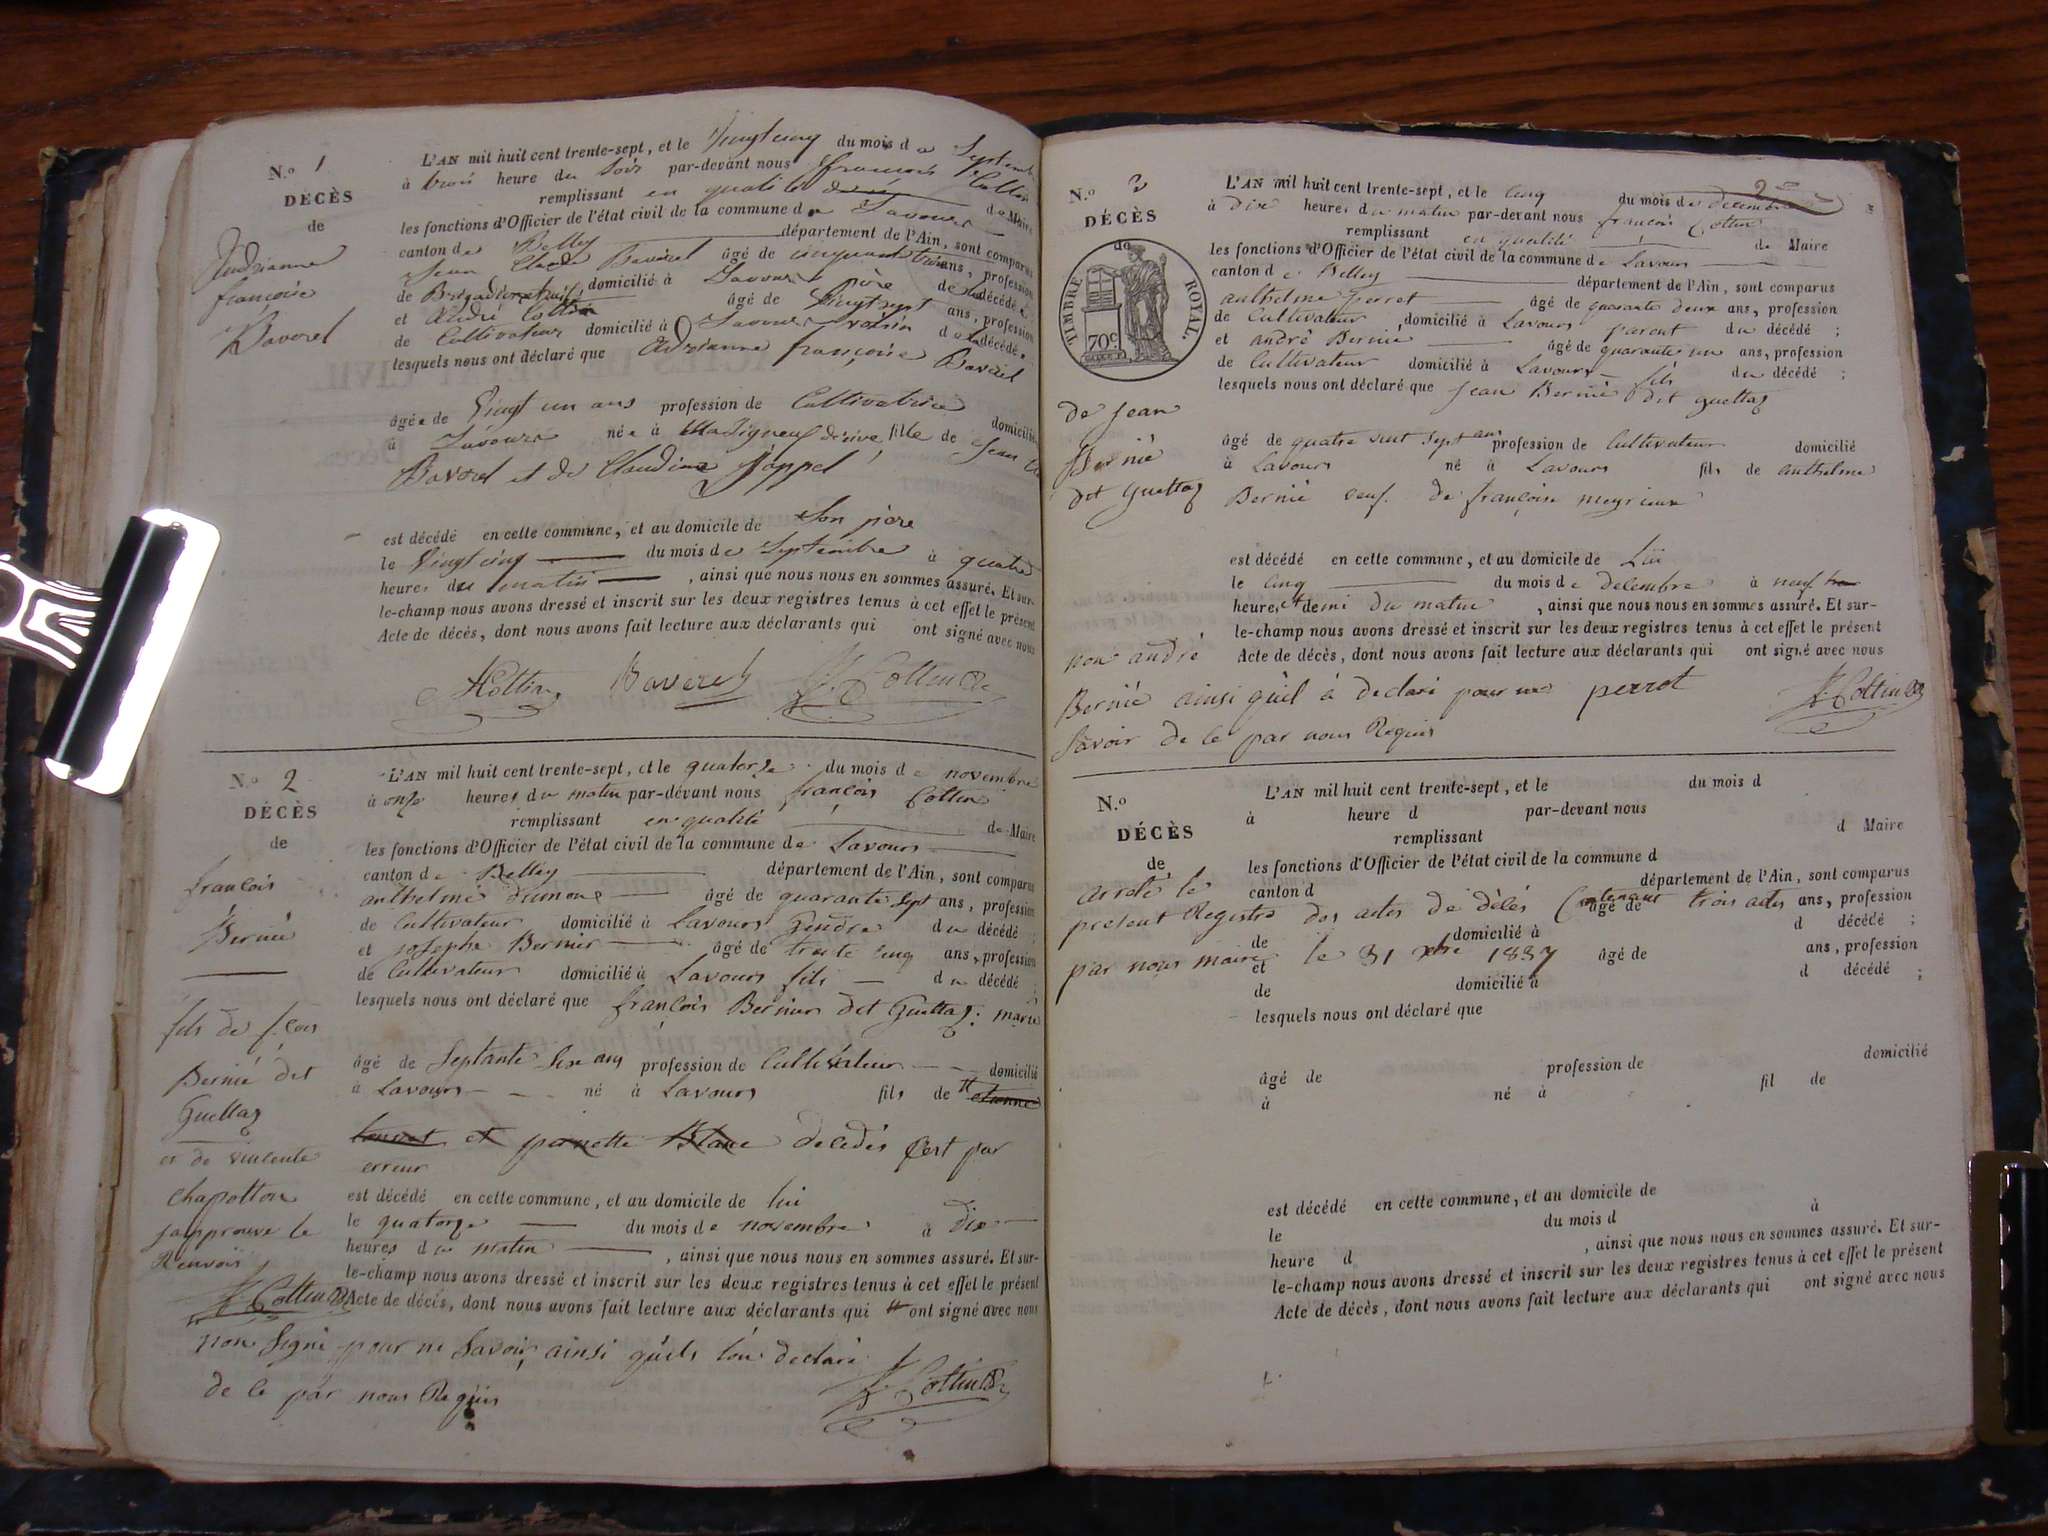 N.º 1
DÉCÈS
de
Andrianne
françoise
Baverel
L'AN mil huit cent trente-sept, et le Vingt cinq du mois de Septembre
à trois heure du Soir par-devant nous François Cottin
remplissant en qualité de Maire
les fonctions d'Officier de l'état civil de la commune de Lavours
canton de Belley département de l'Ain, sont comparus
Jean Claude Baverel âgé de cinquante trois ans, profession
de domicilié à Lavours père de la décédée
et André Cottin âgé de Vingt sept ans, profession
de Cultivateur domicilié à Lavours voisin de la décédée
lesquels nous ont déclaré que Adrianne françoise Baverel
âgée de Vingt un ans profession de Cultivatrice domiciliée
à Lavours née à fille de Jean
Baverel et de Claudine Joppel
est décédé en cette commune, et au domicile de Son père
le Vingt cinq du mois de Septembre à quatre
heures du matin, ainsi que nous nous en sommes assuré. Et sur-
le-champ nous avons dressé et inscrit sur les deux registres tenus à cet effet le présent
Acte de décès, dont nous avons fait lecture aux déclarants qui ont signé avec nous
ACottin Baverel F. Cottin
N.º 2
DÉCÈS
de
françois
Bernié
fils de f.çois
Bernié dit
Guettaz
et de vincente
chapotton
japprouve le
Renvoii
F. Cottin
L'AN mil huit cent trente-sept, et le quatorze du mois de novembre
à onze heures du matin par-devant nous françois Cottin
remplissant en qualité de Maire
les fonctions d'Officier de l'état civil de la commune de Lavours
canton de Belley département de l'Ain, sont comparus
anthelme dumons âgé de quarante sept ans, profession
de Cultivateur domicilié à Lavours Gendre du décédé ;
et josephe Bernier âgé de trente cinq ans, profession
de Cultivateur domicilié à Lavours fils du décédé ;
lesquels nous ont déclaré que françois Bernier dit Guettaz. marie
âgé de Septante Six ans profession de Cultivateur domicilié
à Lavours né à Lavours fils de etienne
et pernette Blanc decedés c'est par
erreur
est décédé en cette commune, et au domicile de lui
le quatorze du mois de novembre à dix
heures du matin, ainsi que nous nous en sommes assuré. Et sur-
le-champ nous avons dressé et inscrit sur les deux registres tenus à cet effet le présent
Acte de décès, dont nous avons fait lecture aux déclarants qui ont signé avec nous
non Signé pour ne Savoir, ainsi qúils lon declaré
de le par nous Requis F. Cottin
2
N.º 3
DÉCÈS
de
TIMBRE ROYAL.
70 c.
de jean
Bernié
dit Guettaz
L'AN mil huit cent trente-sept, et le cinq du mois de decembre
à dix heures du matin par-devant nous françois Cottin
remplissant en qualité de Maire
les fonctions d'Officier de l'état civil de la commune de Lavours
canton de Belley département de l'Ain, sont comparus
anthelme perret âgé de quarante deux ans, profession
de Cultivateur, domicilié à Lavours parent du décédé ;
et andré Bernié âgé de quarante un ans, profession
de Cultivateur domicilié à Lavours fils du décédé ;
lesquels nous ont déclaré que jean Bernié dit guettaz
âgé de quatre vint sept ans profession de Cultivateur domicilié
à Lavours né à Lavours fils de anthelme
Bernié veuf de françoise meyrieux
est décédé en cette commune, et au domicile de Lui
le cinq du mois de decembre à neuf
heures et demi du matin, ainsi que nous nous en sommes assuré. Et sur-
le-champ nous avons dressé et inscrit sur les deux registres tenus à cet effet le présent
Acte de décès, dont nous avons fait lecture aux déclarants qui ont signé avec nous
non andré
Bernié ainsi qúil à declaré pour ne perrot F. Cottin
Savoir de le par nous Requis
N.º
DÉCÈS
de
L'AN mil huit cent trente-sept, et le du mois d
à heure d par-devant nous
remplissant d Maire
les fonctions d'Officier de l'état civil de la commune d
canton d département de l'Ain, sont comparus
arreté le
présent Registre des actes de décés Contenant trois actes
âgé de ans, profession
de domicilié à d décédé ;
par nous maire le 31 xbre 1837
et âgé de ans, profession
de domicilié à d décédé ;
lesquels nous ont déclaré que
âgé de profession de domicilié
à né à fil de
est décédé en cette commune, et au domicile de
le du mois d à
heure d , ainsi que nous nous en sommes assuré. Et sur-
le-champ nous avons dressé et inscrit sur les deux registres tenus à cet effet le présent
Acte de décès, dont nous avons fait lecture aux déclarants qui ont signé avec nous